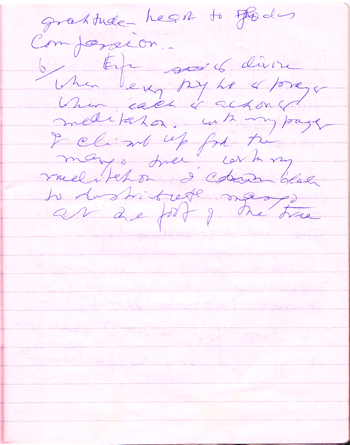 gratitude-heart to God's
Compassion..
6/ Life is divine
when every thought is prayer
when each action is
meditation. with my prayer
I climb up for the
mango tree. with my
meditation I climb down
to distribute mangoes
at the foot of the tree